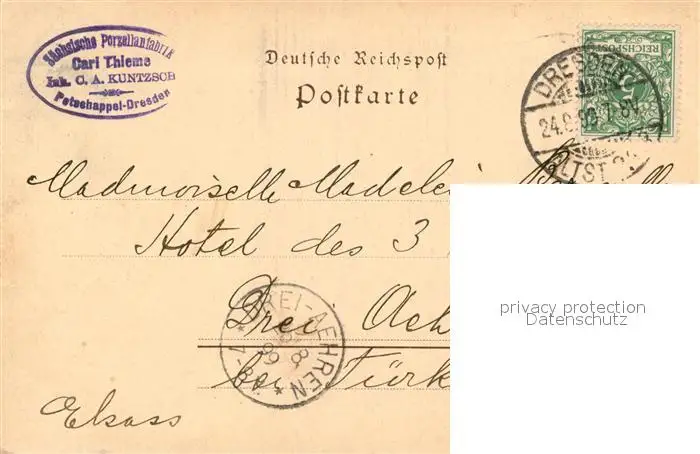 Sächsische Porzellanfabrik
Carl Thieme
Inh. C. A. KUNTZSCH
Potschappel-Dresden
Deutsche Reichspost
Postkarte
REICHSPOST
DRESDEN
24.8.99. 7-8V.
ALTST.
Mademoiselle Madelei
Hotel des 3
Drei Aeh
bei Türk
Elsass
DREI-AEHREN
8
99
7-8
privacy protection
Datenschutz